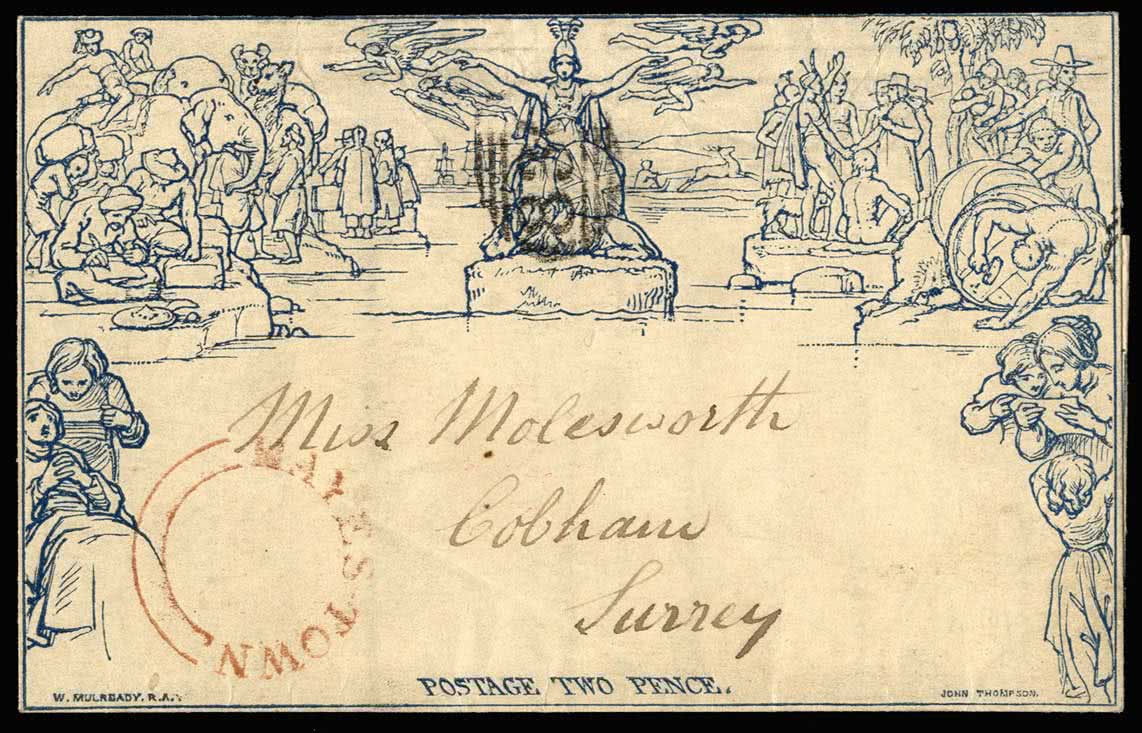 Miss Molesworth
Cobham
Surrey
MAYESTOWN
POSTAGE TWO PENCE.
W. MULREADY. R.A.
JOHN THOMPSON.